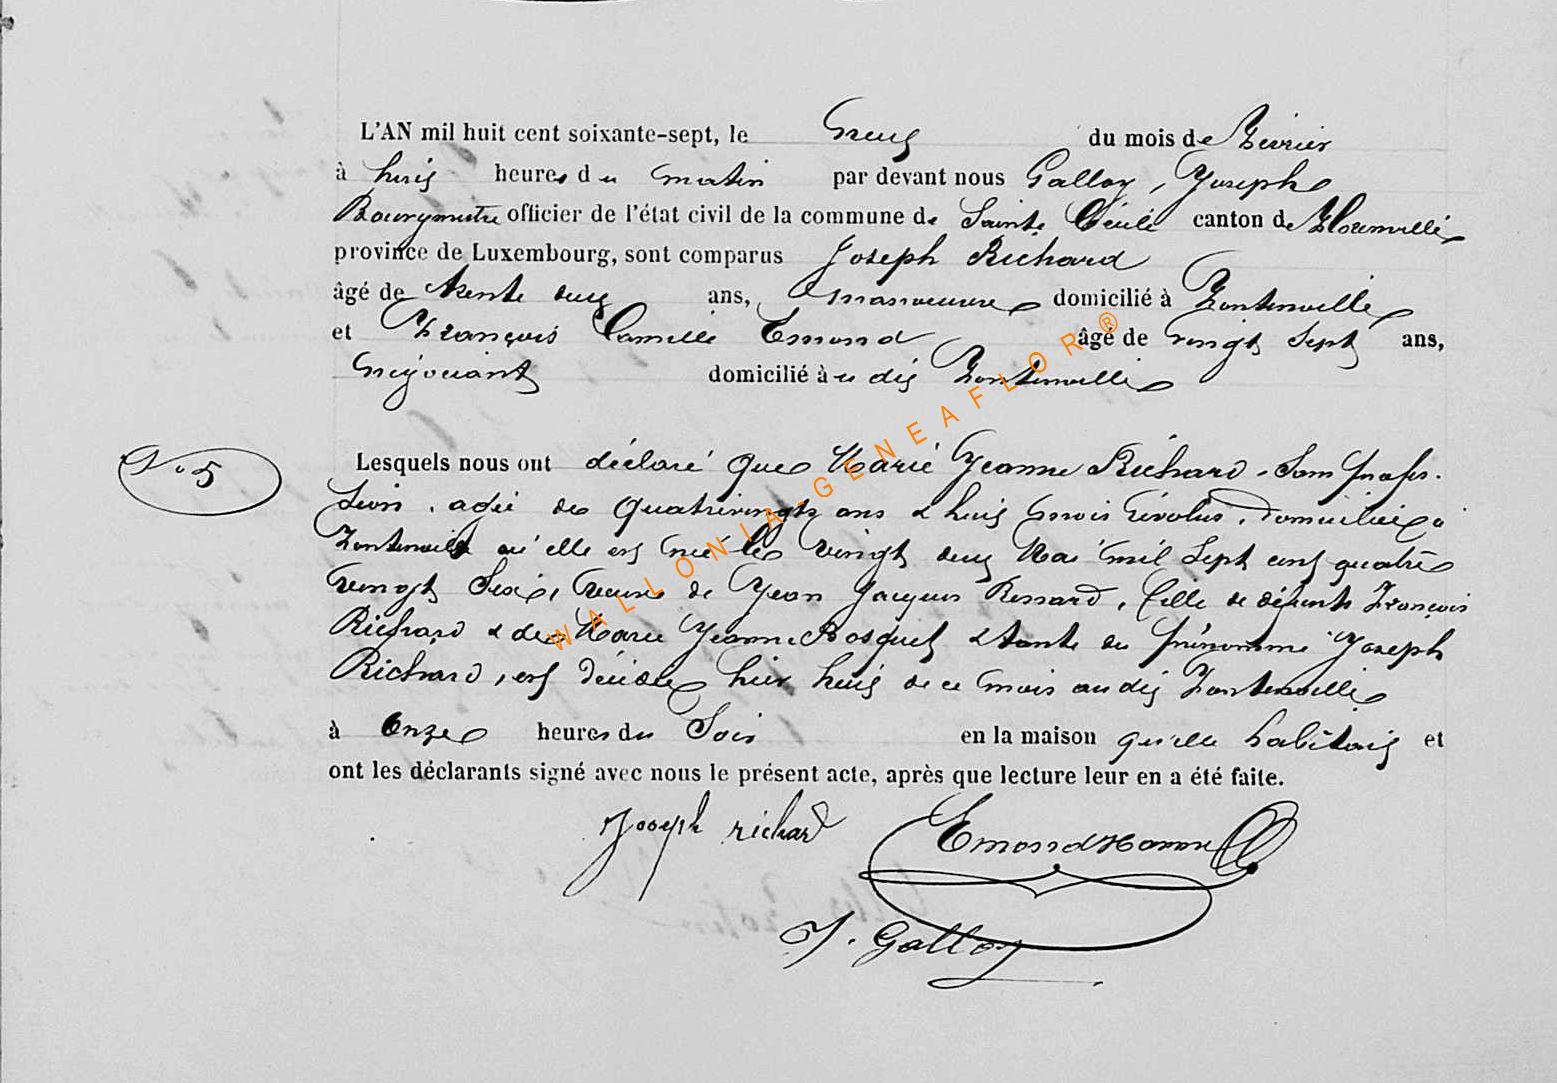 L'AN mil huit cent soixante-sept, le neuf du mois de Février
à huit heures du matin par devant nous Galloy, Joseph
Bourgmestre officier de l'état civil de la commune de Sainte Cécile canton de Florenville
province de Luxembourg, sont comparus Joseph Richard
âgé de trente deux ans, manoeuvre domicilié à Fontenoille
et François Camille Emond âgé de vingt sept ans,
négociant domicilié à u dit Fontenoille
N° 5
Lesquels nous ont déclaré que Marie Jeanne Richard, sans profes-
sion, agée de quatrevingts ans & huit mois révolus, domiciliée à
Fontenoille où elle est née le vingt deux Mai mil sept cent quatre
vingt six, veuve de Jean Jacques Ressard, fille de défunts François
Richard & de Marie Jeanne Bosquet & tante du prénommé Joseph
Richard, est décédée hier huit de ce mois au dit Fontenoille
à onze heures du soir en la maison qu'elle habitait et
ont les déclarants signé avec nous le présent acte, après que lecture leur en a été faite.
Joseph richard Emond
J. Galloy
WALLONIA-GENEAFLOR®